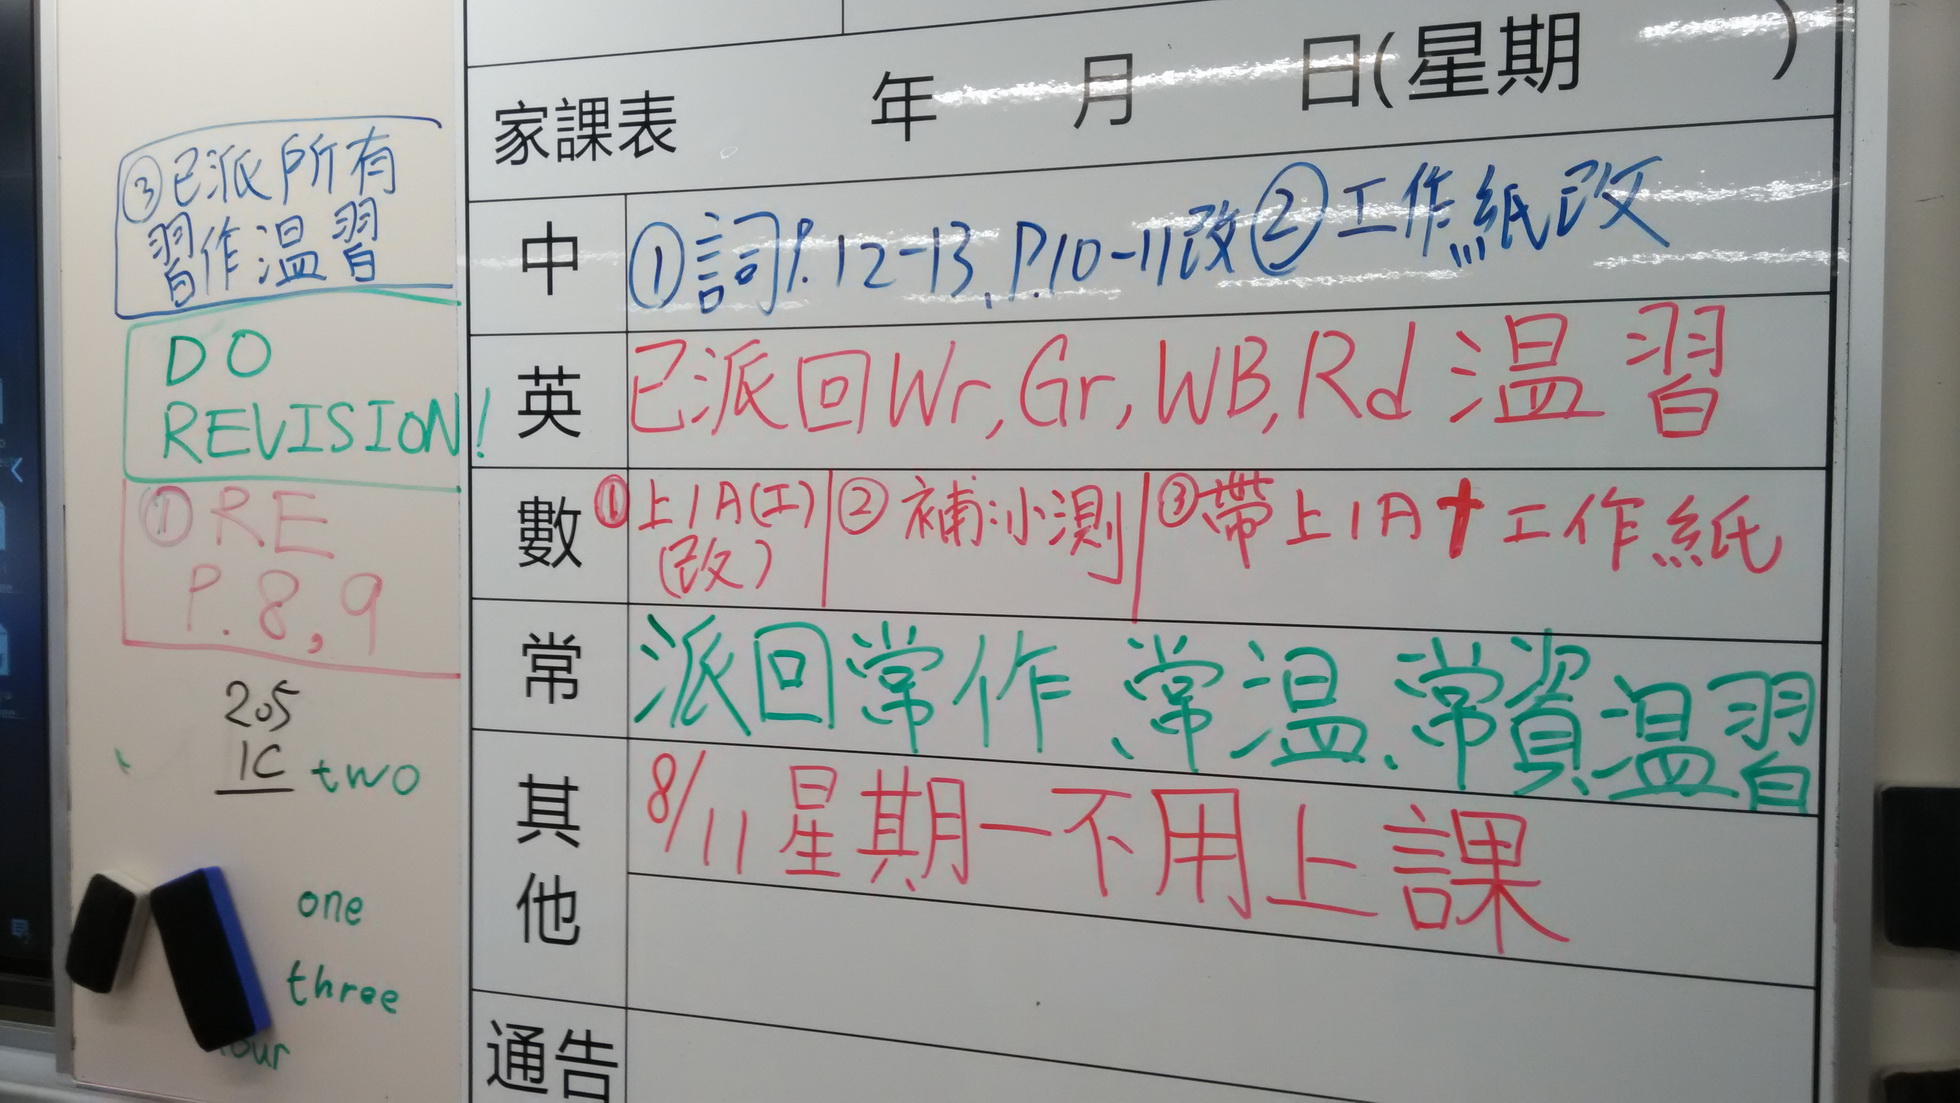 家課表 年 月 日(星期 )
中 ①詞P.12-13、P.10-11改②工作紙改
③已派所有
習作温習
英 已派回Wr, Gr, WB, Rd 温習
DO
REVISION!
數 ①上1A(工)(改) ②補小測 ③帶上1A+工作紙
①RE
P.8,9
常 派回常作、常温、常資温習
其他 8/11星期一不用上課
通告
205
1C two
one
three
our